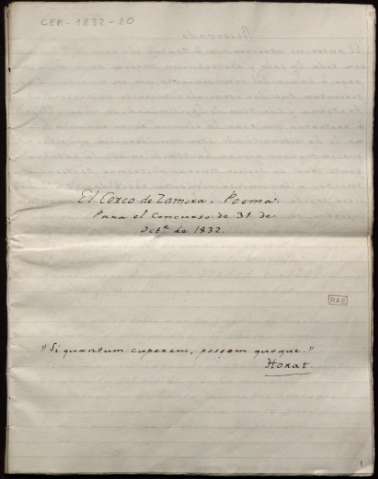 CER-1832-20
El Cerco de Zamora. Poema.
Para el Concurso de 31 de
Oct.e de 1832.
RAE
"Si quantum cuperem, possem quoque."
Horat.